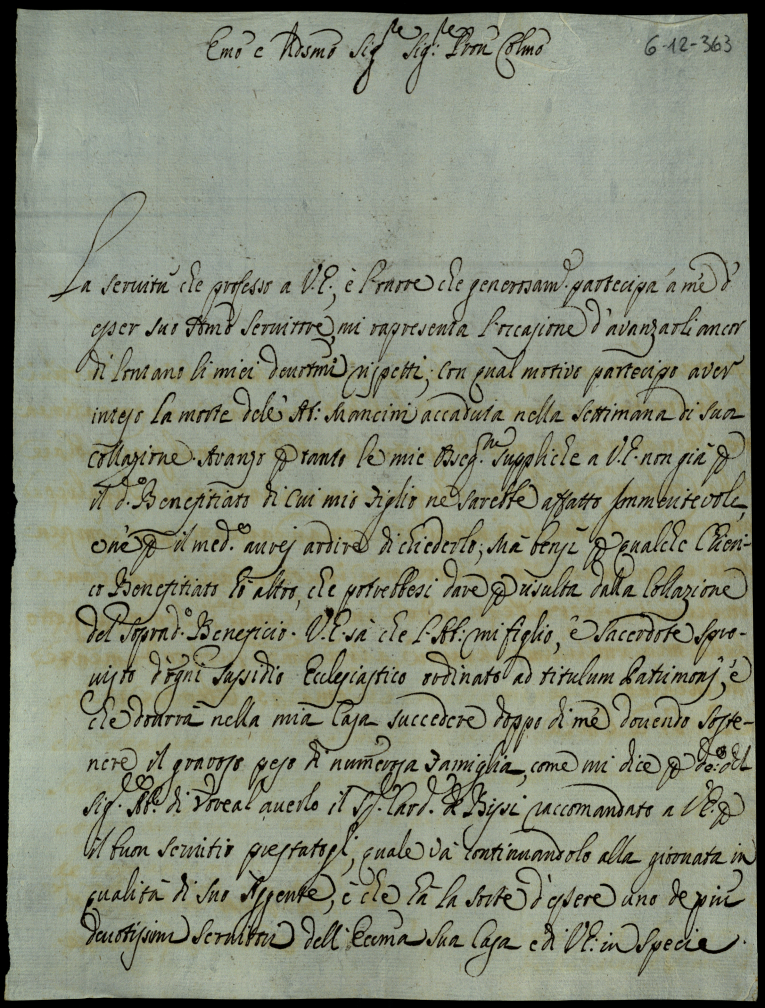 Emo e Rdsmo Sig.re Sig.re Pron Colmo
6-12-363
La servitù che professo a V.E., è l'onore che generosam.e partecipa à me d'
esser suo servitore, mi rapresenta l'occasione d'avanzarli ancor
di lontano li miei devotmi rispetti; con qual motivo partecipo aver
inteso la morte dell' Ab: Mancini accaduta nella settimana di sua
collazione. Avanzo p tanto le mie suppliche a V.E. non già p
il d.o Benefitiato di cui mio figlio ne sarebbe affatto immeritevole,
e nè p il med.o avrej ardire di chiederlo; mà bensì p qualche Chieri-
co Benefitiato ò altro, che potrebbesi dare p risulta dalla Collazione
del soprad.o Beneficio. V.E. sà che l'Ab: mi figlio, è sacerdote spro-
visto d'ogni sussidio Ecclesiastico ordinato ad titulum Patrimonj, è
che dourrà nella mia Casa succedere doppo di me dovendo soste-
nere il gravoso peso di numerosa famiglia, come mi dice p
Sig. Ab: di averlo il Sig. Card. de Bissi raccomandato a V.E. p
il buon servitio prestatogli, quale và continuandolo alla giornata in
qualità di suo Aggente, è che hà la sorte d'essere uno de più
devotissimi servitori dell'Eccma sua Casa e di V.E. in specie.